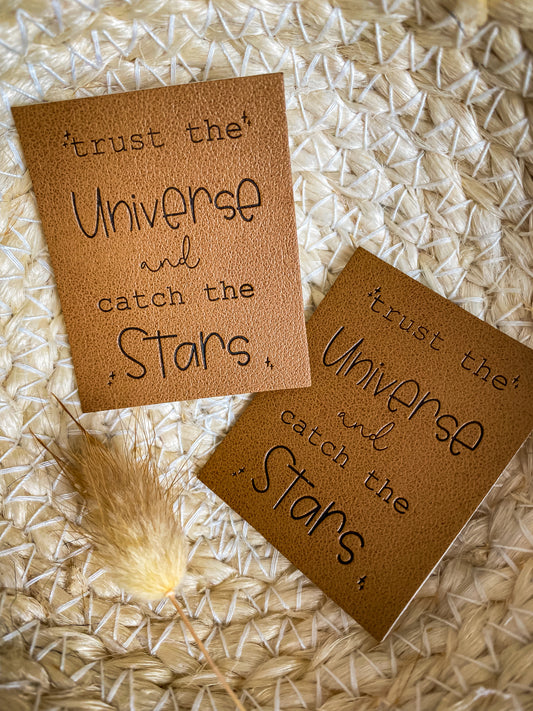 trust the
Universe
and
catch the
Stars
trust the
Universe
and
catch the
Stars